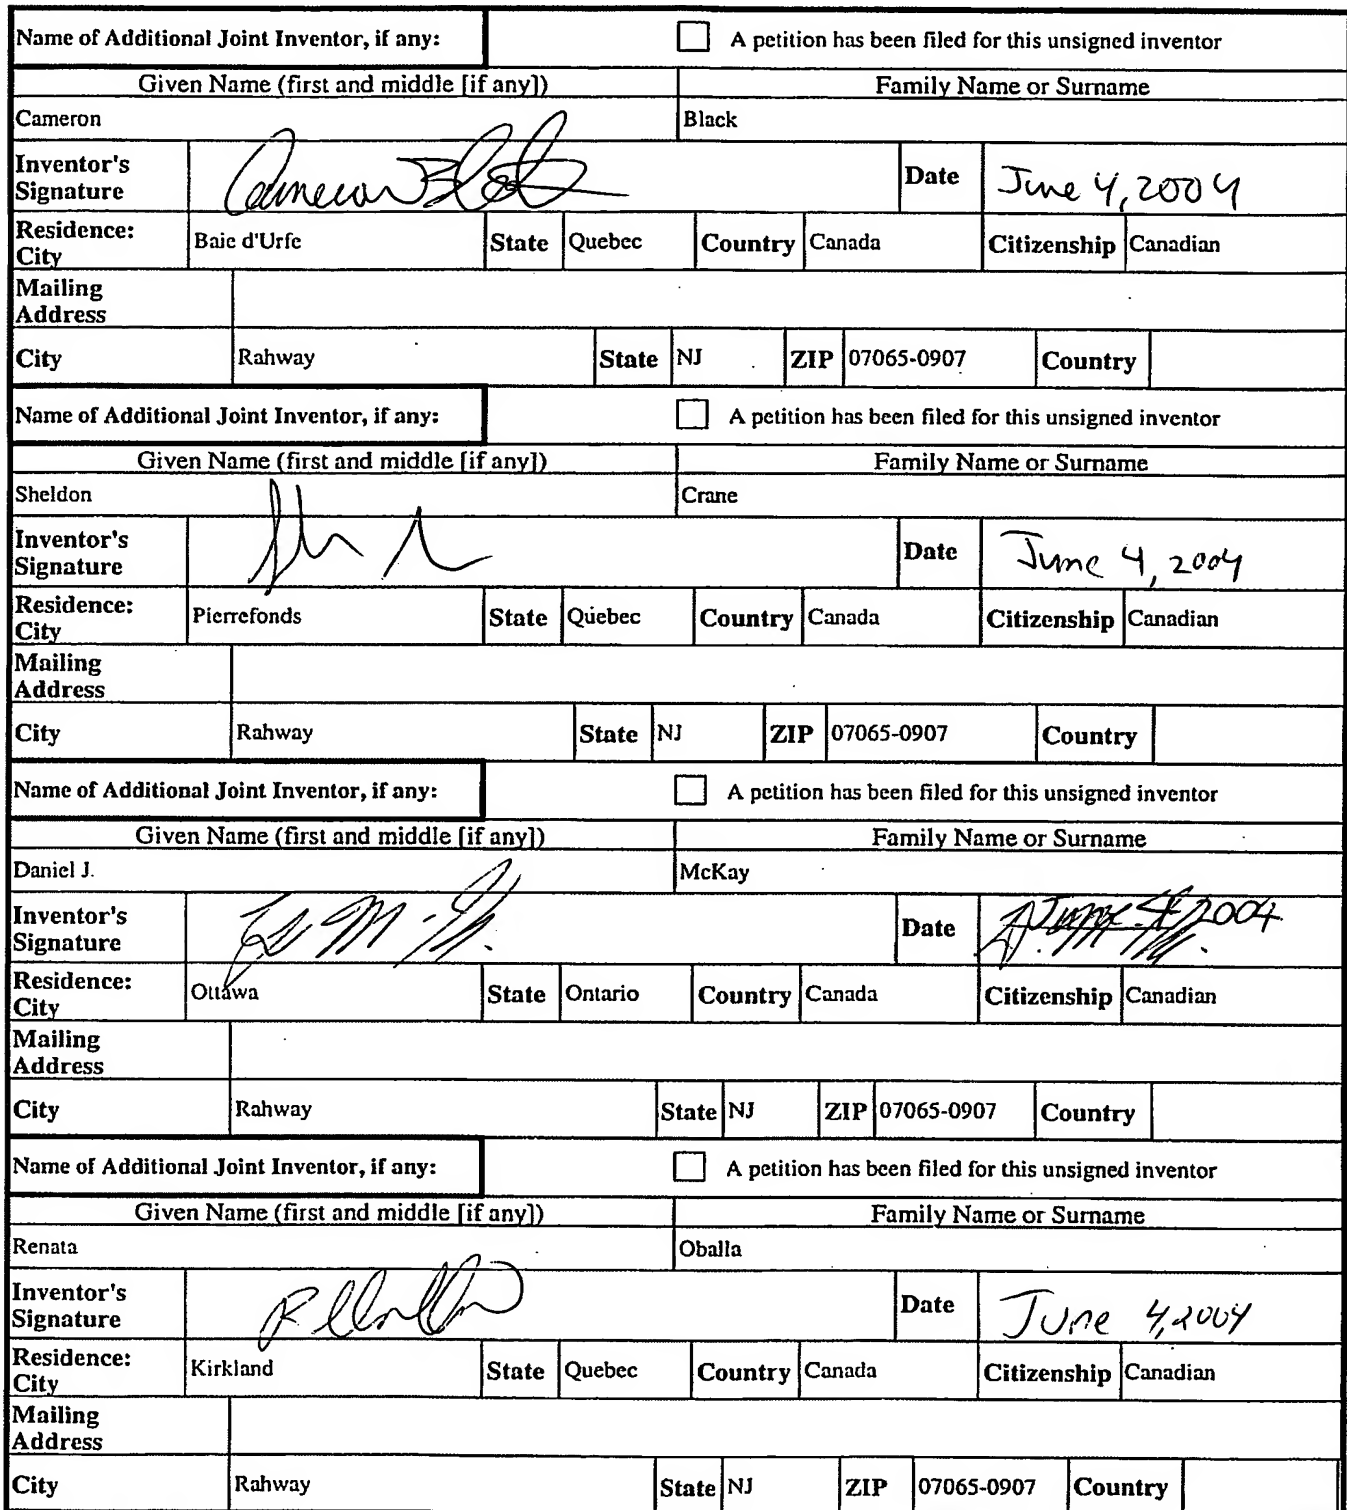 Name of Additional Joint Inventor, if any: A petition has been filed for this unsigned inventor
Given Name (first and middle [if any]) Family Name or Surname
Cameron Black
Inventor's Signature Cameron Black Date June 4, 2004
Residence: City Baie d'Urfe State Quebec Country Canada Citizenship Canadian
Mailing Address
City Rahway State NJ ZIP 07065-0907 Country
Name of Additional Joint Inventor, if any: A petition has been filed for this unsigned inventor
Given Name (first and middle [if any]) Family Name or Surname
Sheldon Crane
Inventor's Signature Date June 4, 2004
Residence: City Pierrefonds State Quebec Country Canada Citizenship Canadian
Mailing Address
City Rahway State NJ ZIP 07065-0907 Country
Name of Additional Joint Inventor, if any: A petition has been filed for this unsigned inventor
Given Name (first and middle [if any]) Family Name or Surname
Daniel J. McKay
Inventor's Signature Date June 4, 2004
Residence: City Ottawa State Ontario Country Canada Citizenship Canadian
Mailing Address
City Rahway State NJ ZIP 07065-0907 Country
Name of Additional Joint Inventor, if any: A petition has been filed for this unsigned inventor
Given Name (first and middle [if any]) Family Name or Surname
Renata Oballa
Inventor's Signature Date June 4, 2004
Residence: City Kirkland State Quebec Country Canada Citizenship Canadian
Mailing Address
City Rahway State NJ ZIP 07065-0907 Country